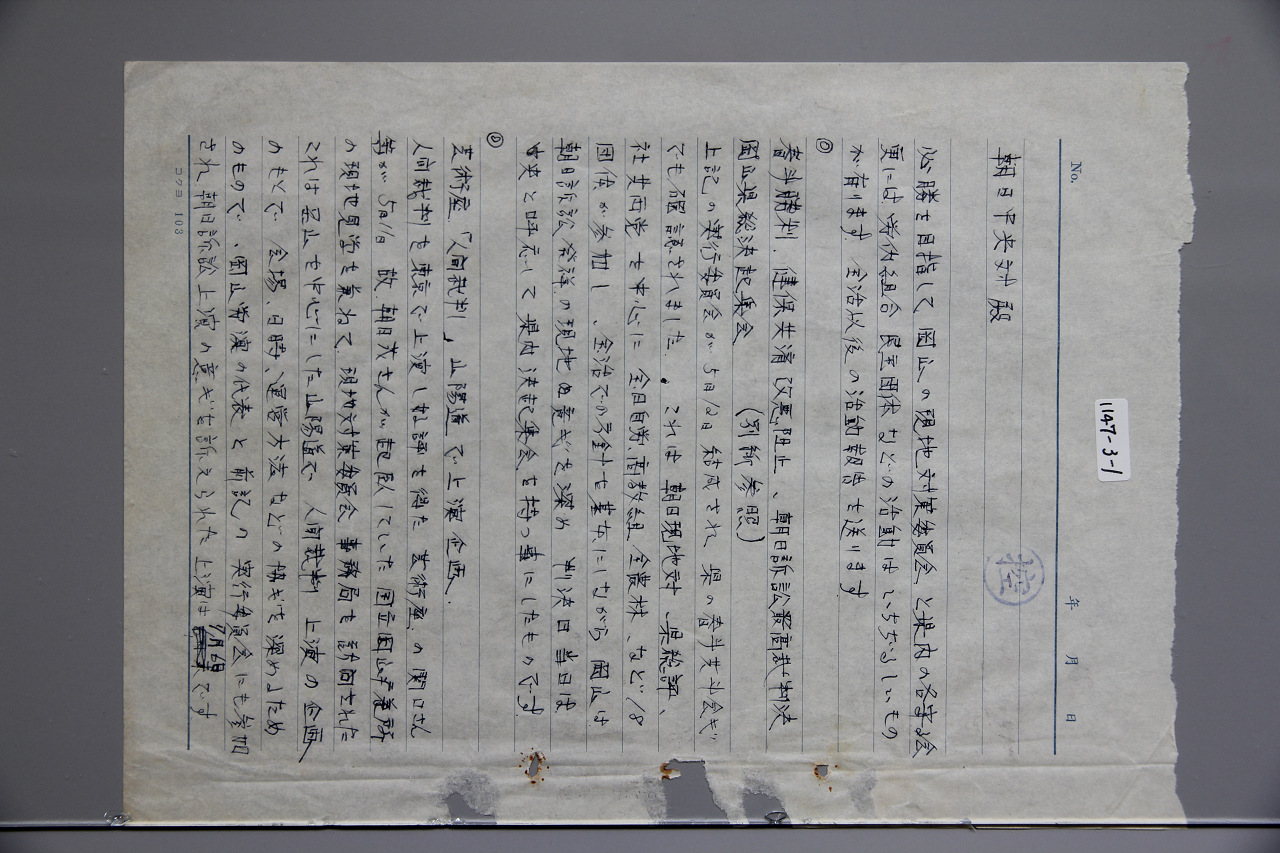 1147-3-1
No.
年 月 日
控
朝日中央対殿
必勝を目指して岡山の現地対策委員会と県内の各守る会
更には労仂組合 民主団体などの活動はいちぢるしいもの
が有ります 全治以後の活動報告を送ります
◎
春斗勝利、健保共済改悪阻止、朝日訴訟最高裁判決
岡山県総決起集会 (別紙参照)
上記の実行委員会が5月12日結成され 県の春斗共斗会ギ
でも確認されました。これは朝日現地対、県総評、
社共両党を中心に 全日自労、高教組、全農林、など18
団体が参加し、全治での方針を基本にしながら 岡山は
朝日訴訟発祥の現地の意ギを深め 判決日当日は
中央と呼応して県内決起集会を持つ事にしたものです
◎
芸術座「人間裁判」山陽道で上演企画.
人間裁判を東京で上演し好評を得た 芸術座の関口さん
等が5月11日 故.朝日茂さんが起臥していた国立岡山療養所
の現地見学を兼ねて 現地対策委員会事務局を訪問された
これは岡山を中心にした山陽道で 人間裁判上演の企画
のもとで 会場、日時、運営方法などの協ギを深めるため
のもので、岡山労演の代表と前記の実行委員会にも参加
され 朝日訴訟上演の意ギを訴えられた 上演は9月頃です
コクヨ 103